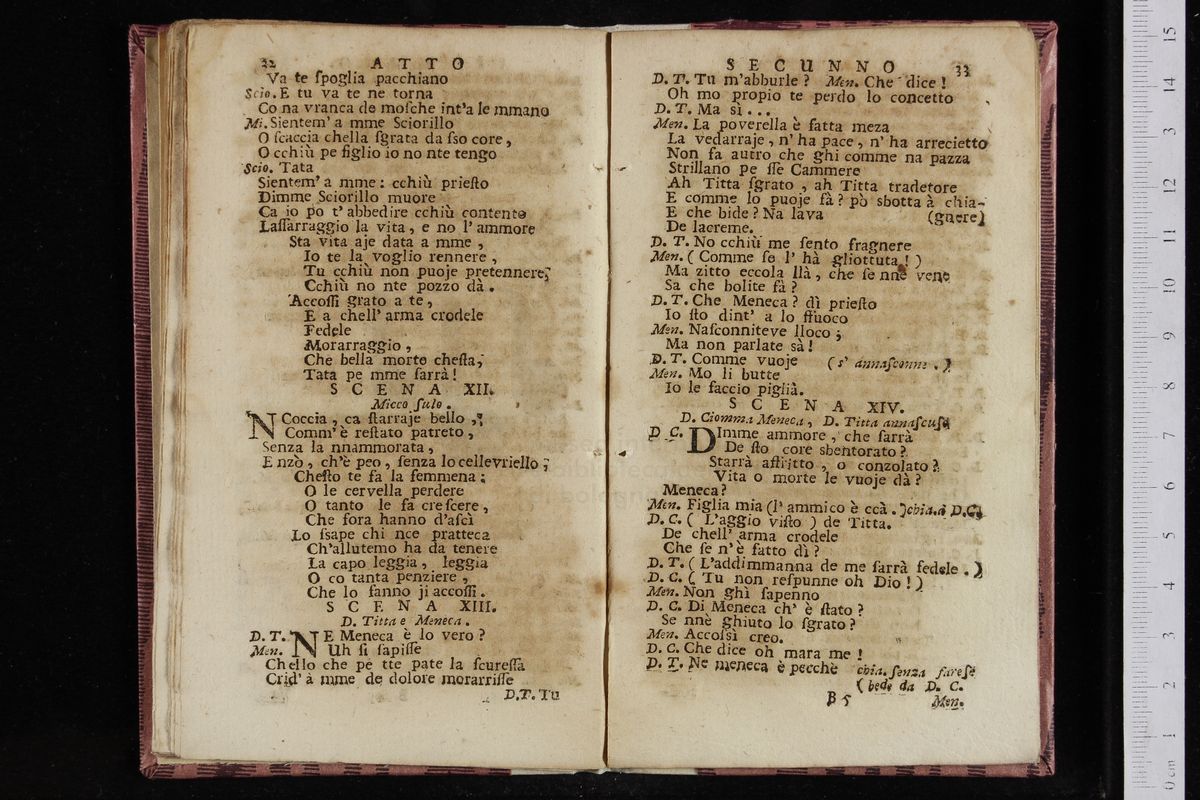 32 ATTO
Va te ſpoglia pacchiano
Scio. E tu va te ne torna
Co na vranca de moſche int'a le mmano
Mi. Sientem' a mme Sciorillo
O ſcaccia chella ſgrata da ſso core,
O cchiù pe figlio io no nte tengo
Scio. Tata
Sientem' a mme: cchiù prieſto
Dimme Sciorillo muore
Ca io po t'abbedire cchiù contento
Laſſarraggio la vita, e no l'ammore
Sta vita aje data a mme,
Io te la voglio rennere,
Tu cchiù non puoje pretennere;
Cchiù no nte pozzo dà.
Accoſſì grato a te,
E a chell' arma crodele
Fedele
Morarraggio,
Che bella morte cheſta,
Tata pe mme ſarrà!
SCENA XII.
Micco ſulo.
NCoccia, ca ſtarraje bello,
Comm'è reſtato patreto,
Senza la nnammorata,
E nzò, ch'è peo, ſenza lo cellevriello;
Cheſto te fa la femmena:
O le cervella perdere
O tanto le fa creſcere,
Che fora hanno d'aſcì
Lo ſsape chi nce pratteca
Ch'allutemo ha da tenere
La capo leggia, leggia
O co tanta penziere,
Che lo fanno jì accoſſì.
SCENA XIII.
D. Titta e Meneca.
D. T. NE Meneca è lo vero?
Men. Uh ſi ſapiſſe
Chello che pe tte pate la ſcureſſa
Crid' à mme de dolore morarriſſe
D. T. Tu
SECUNNO 33
D. T. Tu m'abburle? Men. Che dice!
Oh mo propio te perdo lo concetto
D. T. Ma sì...
Men. La poverella è fatta meza
La vedarraje, n'ha pace, n'ha arrecietto
Non fa autro che ghi comme na pazza
Strillano pe ſſe Cammere
Ah Titta ſgrato, ah Titta tradetore
E comme lo puoje fà? pò sbotta à chia-
E che bide? Na lava (gnere)
De lacreme.
D. T. No cchiù me ſento fragnere
Men. (Comme ſe l'hà gliottuta!)
Ma zitto eccola llà, che ſe nne vene
Sa che bolite fà?
D. T. Che Meneca? dì prieſto
Io ſto dint' a lo ffuoco
Men. Naſconniteve lloco;
Ma non parlate sà!
D. T. Comme vuoje (s' annaſconne.)
Men. Mo li butte
Io le faccio piglià.
SCENA XIV.
D. Ciomma Meneca, D. Titta annaſcuſo
D. C. DImme ammore, che ſarrà
De ſto core sbentorato?
Starrà affritto, o conzolato?
Vita o morte le vuoje dà?
Meneca?
Men. Figlia mia (l'ammico è ccà.) chia. a D.C.
D. C. (L'aggio viſto) de Titta.
De chell' arma crodele
Che ſe n'è fatto dì?
D. T. (L'addimmanna de me ſarrà fedele.)
D. C. (Tu non reſpunne oh Dio!)
Men. Non ghì ſapenno
D. C. Di Meneca ch'è ſtato?
Se nnè ghiuto lo ſgrato?
Men. Accoſsì creo.
D. C. Che dice oh mara me!
D. T. Ne meneca è pecchè chia. ſenza fareſe
(bede da D. C.
B 5 Men.